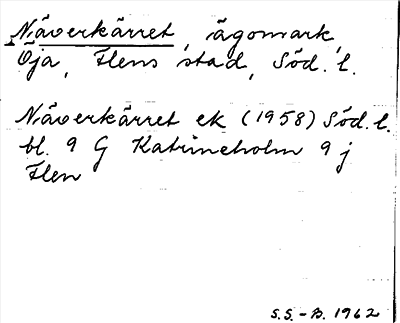 Näverkärret, ägomark,
Öja, Flens stad, Söd. l.
Näverkärret ek (1958) Söd. l.
bl. 9 G Katrineholm 9 j
Flen
S.S.-B. 1962